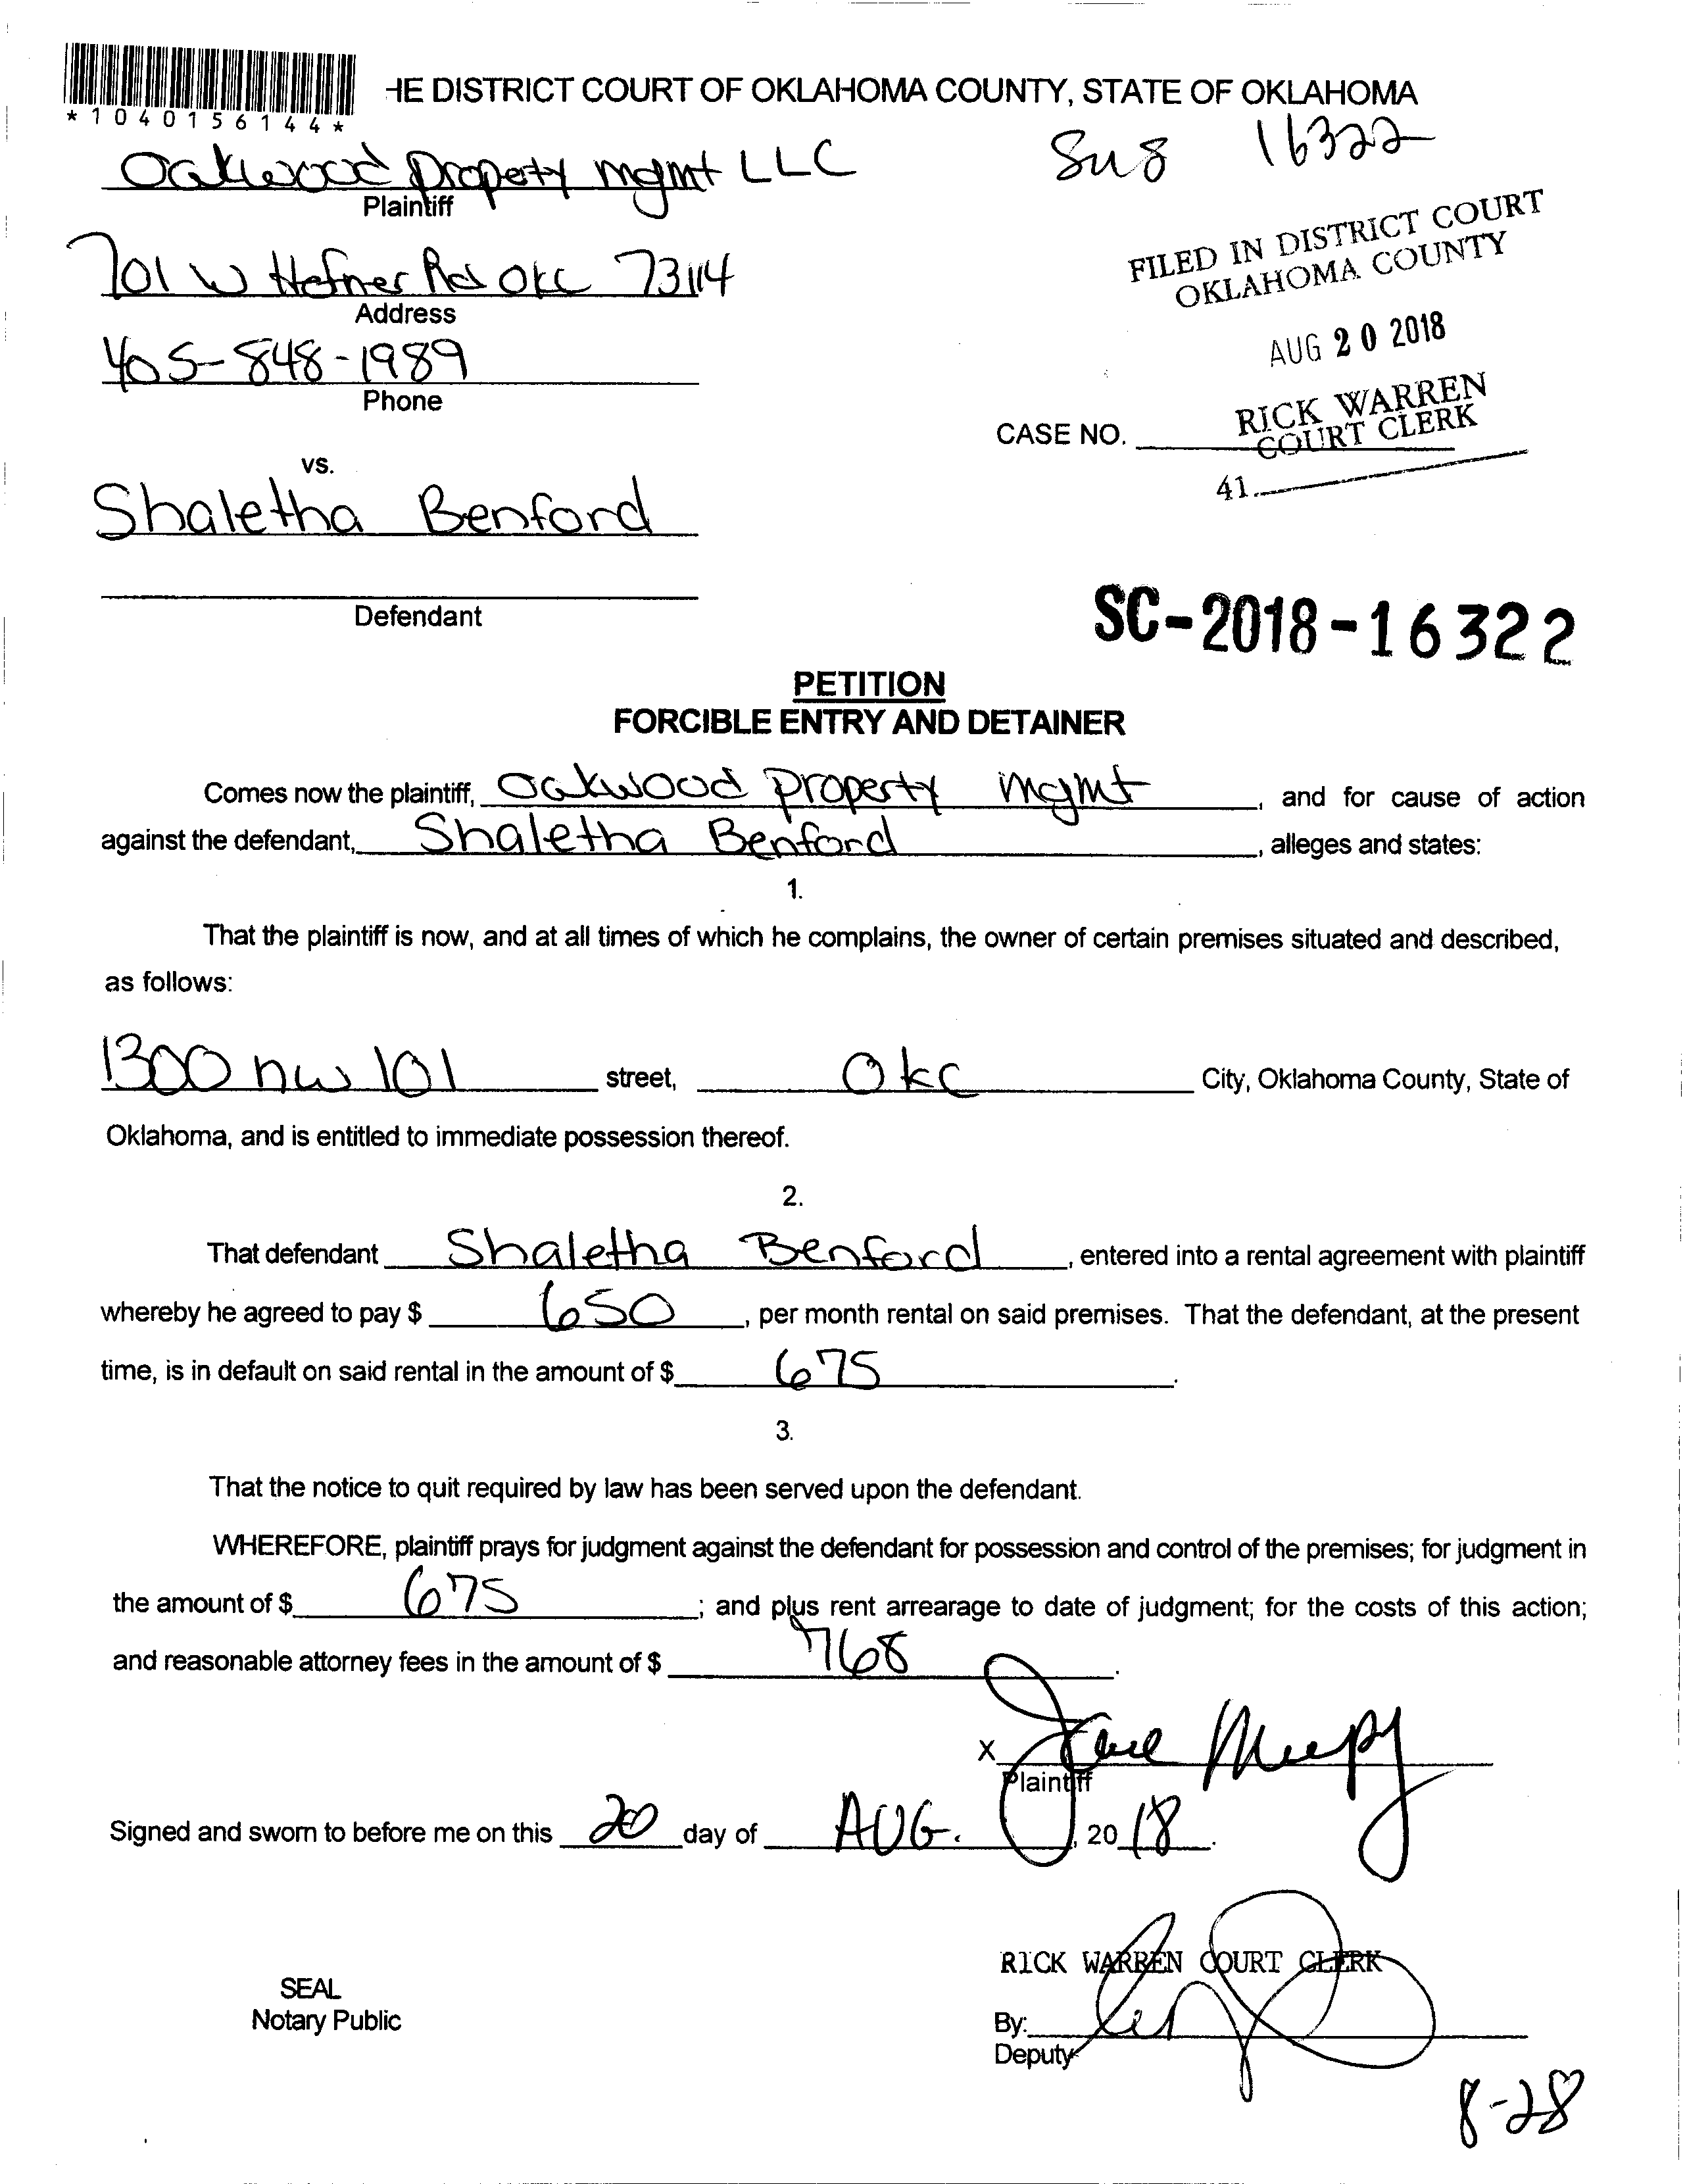 HE DISTRICT COURT OF OKLAHOMA COUNTY, STATE OF OKLAHOMA
*1040156144*
16322
Oakwood Property mgmt LLC
Plaintiff
FILED IN DISTRICT COURT
OKLAHOMA COUNTY
701 W Hefner Rd OKC 73114
Address
AUG 20 2018
405-848-1989
Phone
RICK WARREN
COURT CLERK
CASE NO.
vs.
41
Shaletha Benford
Defendant
SC-2018-16322
PETITION
FORCIBLE ENTRY AND DETAINER
Comes now the plaintiff, Oakwood property mgmt, and for cause of action
against the defendant, Shaletha Benford, alleges and states:
1.
That the plaintiff is now, and at all times of which he complains, the owner of certain premises situated and described,
as follows:
1300 nw 101 street, Okc City, Oklahoma County, State of
Oklahoma, and is entitled to immediate possession thereof.
2.
That defendant Shaletha Benford, entered into a rental agreement with plaintiff
whereby he agreed to pay $ 650, per month rental on said premises. That the defendant, at the present
time, is in default on said rental in the amount of $ 675.
3.
That the notice to quit required by law has been served upon the defendant.
WHEREFORE, plaintiff prays for judgment against the defendant for possession and control of the premises; for judgment in
the amount of $ 675; and plus rent arrearage to date of judgment; for the costs of this action;
and reasonable attorney fees in the amount of $ 768.
X
Plaintiff
Signed and sworn to before me on this 20 day of AUG., 2018.
RICK WARREN COURT CLERK
SEAL
Notary Public
By:
Deputy
8-28